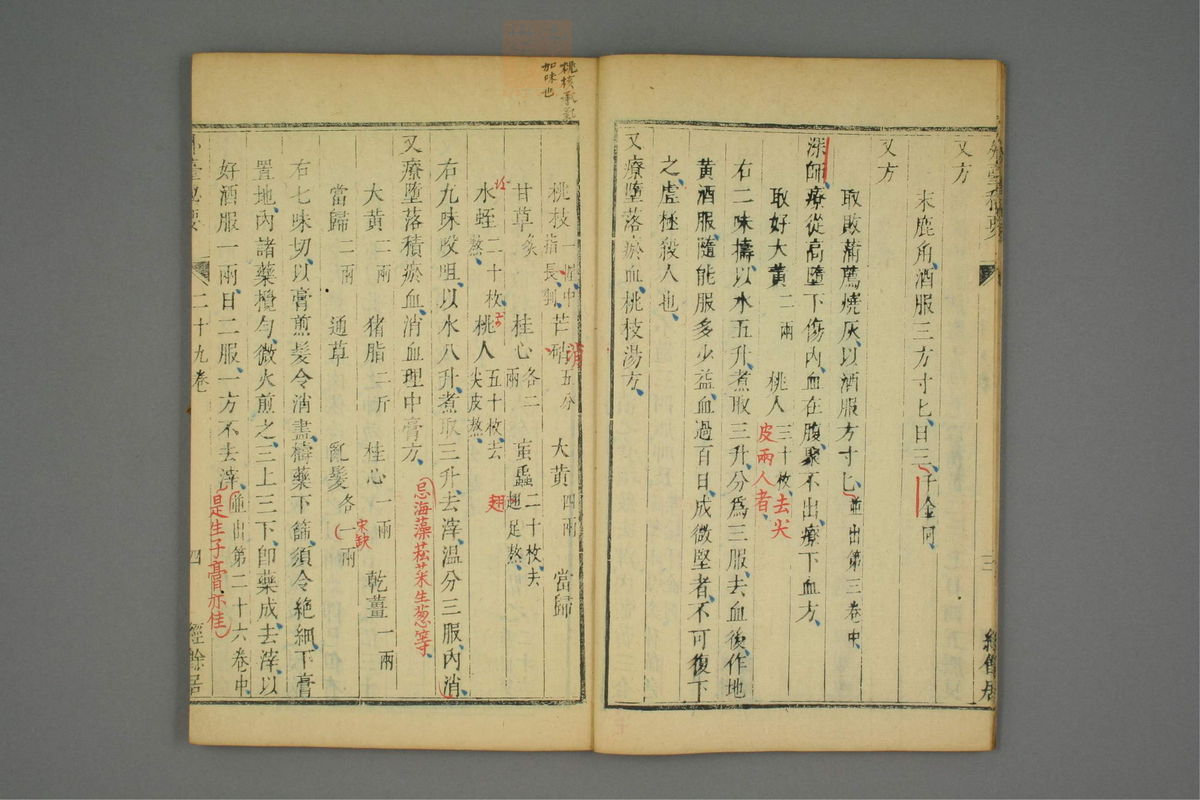 又方
末鹿角酒服三方寸匕日三千金同
又方
取敗蒲薦燒灰以酒服方寸匕並出第三卷中
深師療從高墮下傷内血在腹聚不出療下血方
取好大黄二兩 桃人三十枚去尖皮兩人者
右二味擣以水五升煮取三升分爲三服去血後作地
黄酒服隨能服多少益血過百日成微堅者不可復下
之虚極殺人也
又療墮落瘀血桃枝湯方
三
經餘居
桃核承氣
加味也
桃枝一握中指長剉 芒硝五分 消 大黄四兩 當歸
甘草炙 桂心各二兩 䖟蟲二十枚去翅足熬 翅
水蛭二十枚熬 桃人五十枚去尖皮熬
右九味㕮咀以水八升煮取三升去滓温分三服内消
又療墮落積瘀血消血理中膏方 忌海藻菘菜生葱等
大黄二兩 猪脂二斤 桂心一兩 乾薑一兩
當歸二兩 通草 亂髮各一兩 宋缺
右七味切以膏煎髮令消盡擣藥下篩須令絶細下膏
置地内諸藥攪匀微火煎之三上三下即藥成去滓以
好酒服一兩日二服一方不去滓並出第二十六卷中 是生子膏亦佳
外臺秘要
二十九卷
四
經餘居